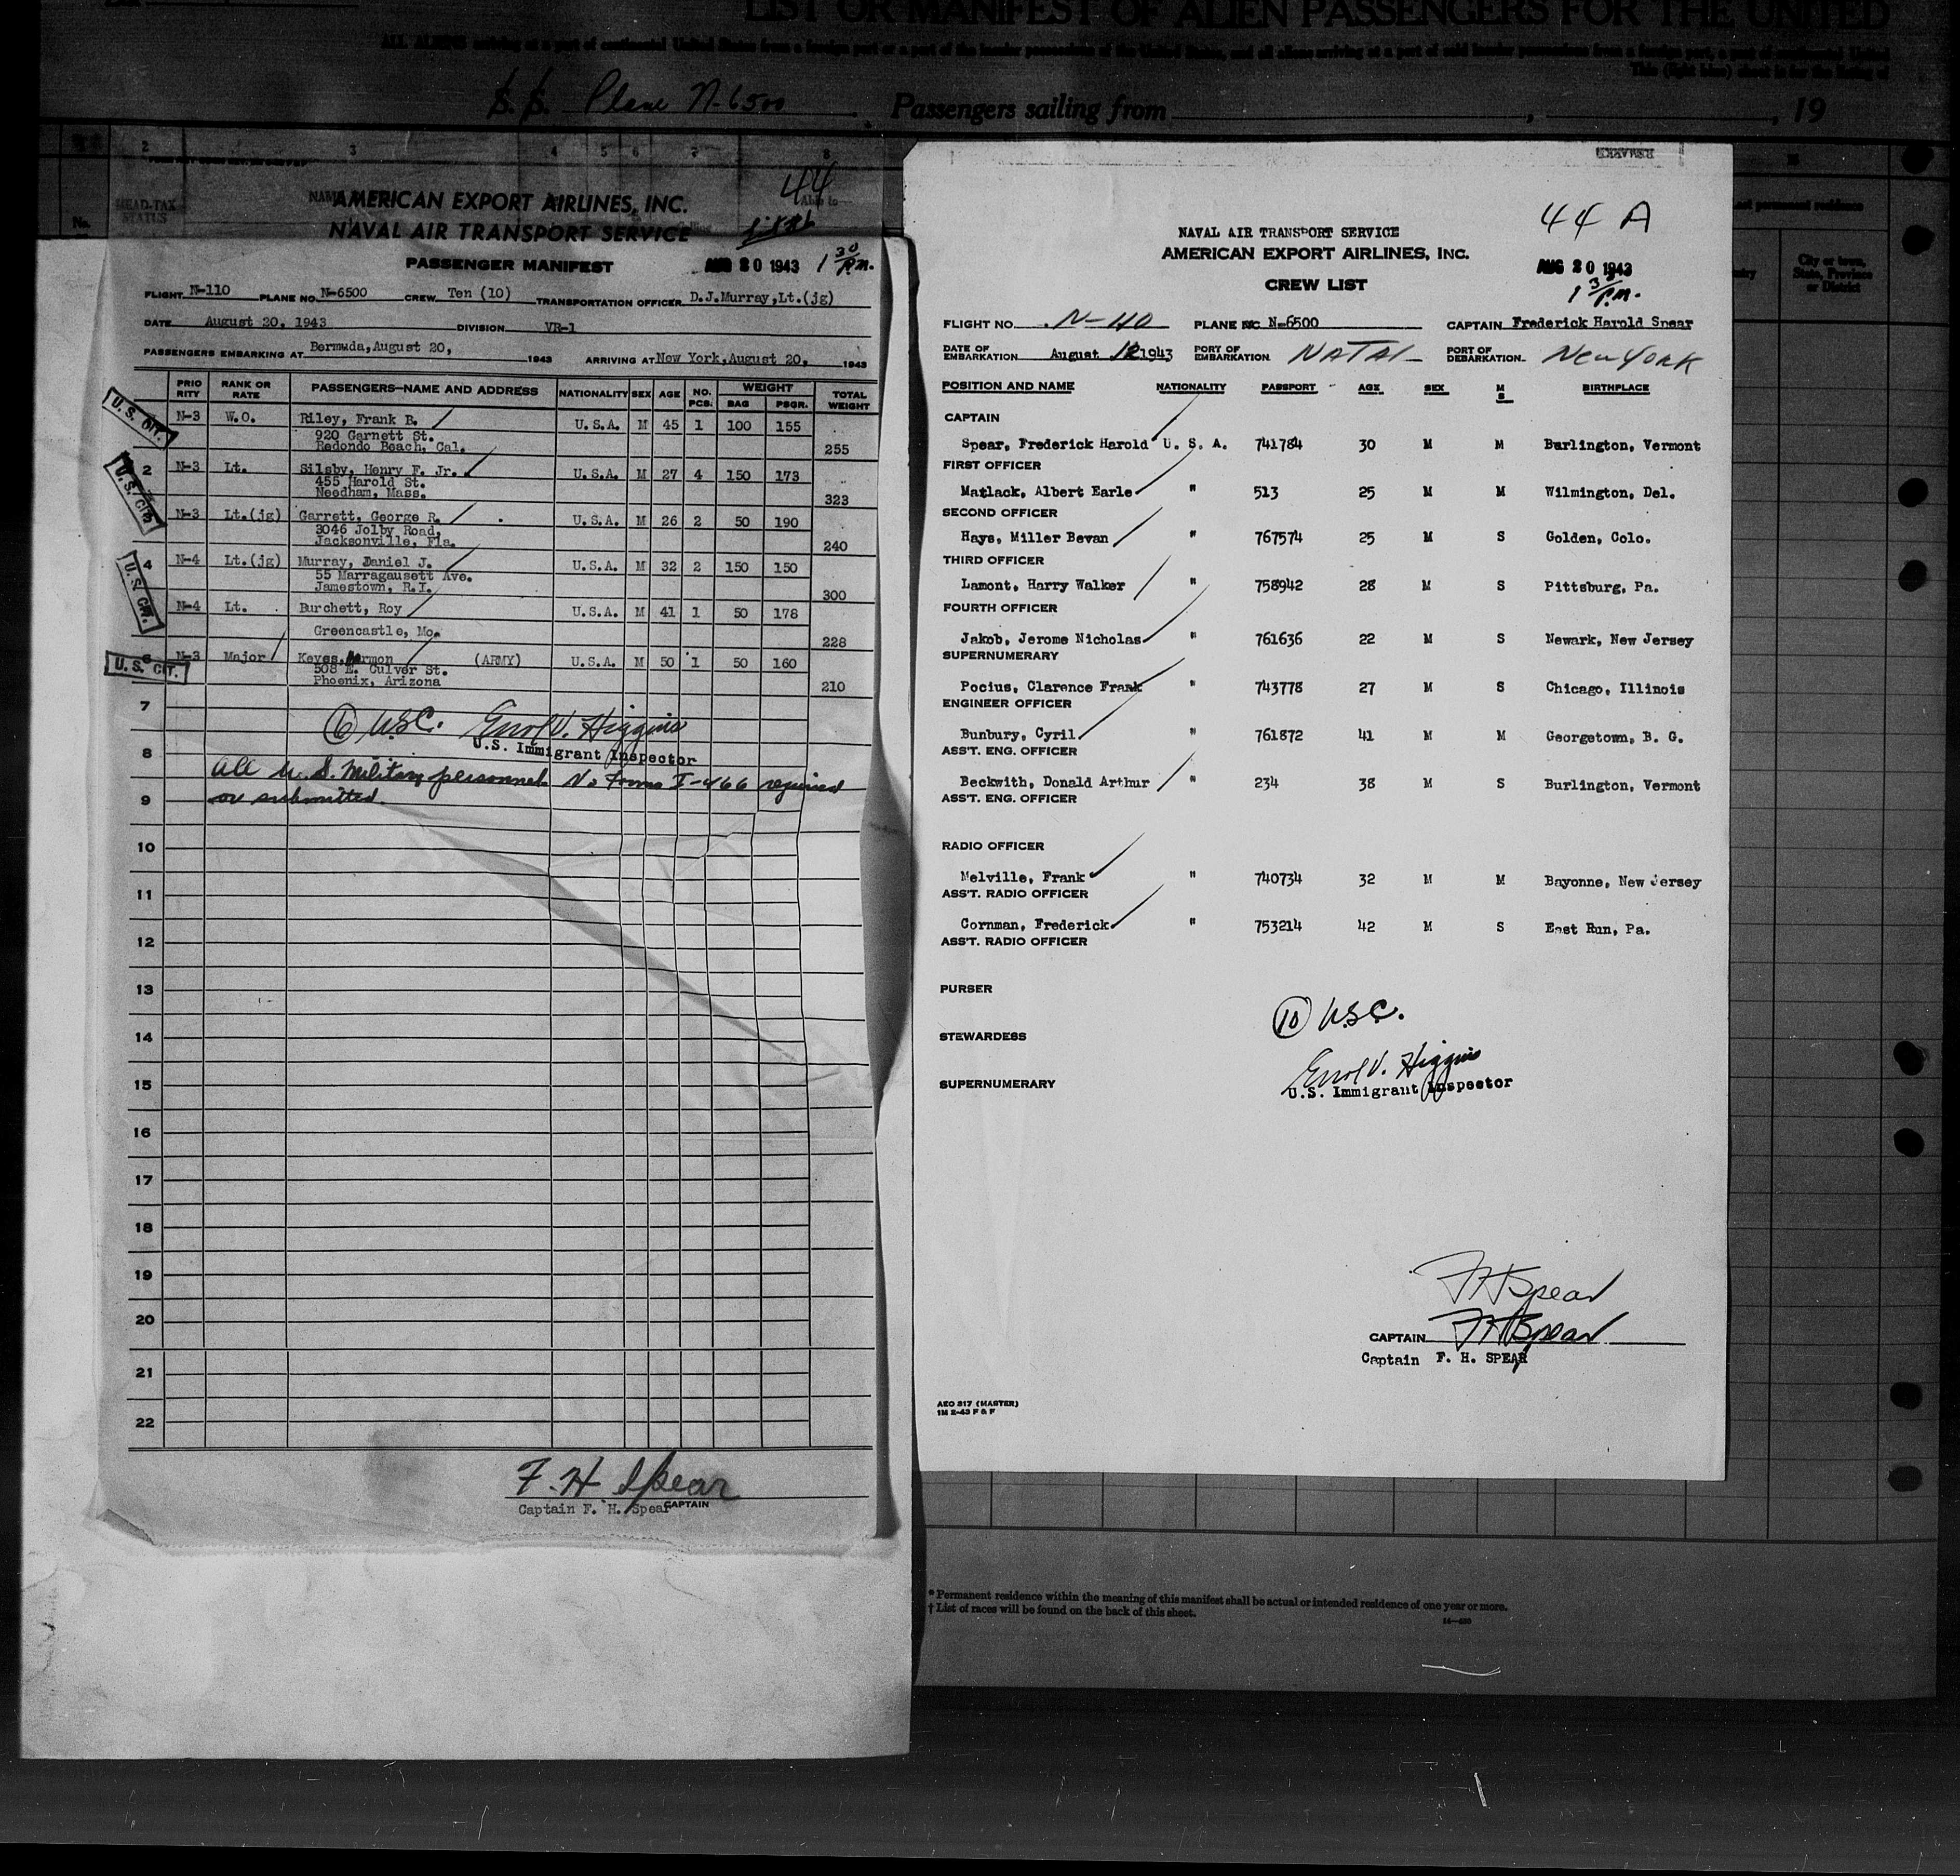 LIST OR MANIFEST OF ALIEN PASSENGERS FOR THE UNITED
ALL ALIENS arriving at a port of continental United States from a foreign port or a port of the insular possessions of the United States, and all aliens arriving at a port of said insular possessions from a foreign port, a port of continental United
This (light blue) sheet is for the listing of
S. S. Plane N-6500 Passengers sailing from , , 19
2 3 4 5 6 7 8
HEAD-TAX
STATUS
No.
44
AMERICAN EXPORT AIRLINES, INC.
NAVAL AIR TRANSPORT SERVICE
PASSENGER MANIFEST AUG 20 1943 1 30 P.m.
FLIGHT N-110 PLANE NO. N-6500 CREW Ten (10) TRANSPORTATION OFFICER D.J.Murray,Lt.(jg)
DATE August 20, 1943 DIVISION VR-1
PASSENGERS EMBARKING AT Bermuda,August 20, 1943 ARRIVING AT New York,August 20, 1943
PRIO RITY RANK OR RATE PASSENGERS—NAME AND ADDRESS NATIONALITY SEX AGE NO. PCS. WEIGHT BAG PSGR. TOTAL WEIGHT
U.S. CIT. N-3 W.O. Riley, Frank B. U.S.A. M 45 1 100 155
920 Garnett St.
Redondo Beach, Cal. 255
U.S. CIT. 2 N-3 Lt. Silsby, Henry F. Jr. U.S.A. M 27 4 150 173
455 Harold St.
Needham, Mass. 323
N-3 Lt.(jg) Garrett, George R. U.S.A. M 26 2 50 190
3046 Jolby Road,
Jacksonville, Fla. 240
U.S. CIT. 4 N-4 Lt.(jg) Murray, Daniel J. U.S.A. M 32 2 150 150
55 Marragausett Ave.
Jamestown, R.I. 300
N-4 Lt. Burchett, Roy U.S.A. M 41 1 50 178
Greencastle, Mo. 228
U.S. CIT. 6 N-3 Major Keyes, Harmon (ARMY) U.S.A. M 50 1 50 160
508 E. Culver St.
Phoenix, Arizona 210
7
(6) USC. Errol V. Higgins
U.S. Immigrant Inspector
8
All U.S. Military personnel No Forms I-466 required
9
or submitted.
10
11
12
13
14
15
16
17
18
19
20
21
22
F. H Spear
Captain F. H. Spear CAPTAIN
44 A
NAVAL AIR TRANSPORT SERVICE
AMERICAN EXPORT AIRLINES, INC.
AUG 20 1943
CREW LIST
1 30 P.m.
FLIGHT NO. N-110 PLANE NO. N-6500 CAPTAIN Frederick Harold Spear
DATE OF EMBARKATION August 12 1943 PORT OF EMBARKATION NATAL PORT OF DEBARKATION New York
POSITION AND NAME NATIONALITY PASSPORT AGE SEX M S BIRTHPLACE
CAPTAIN
Spear, Frederick Harold U. S. A. 741784 30 M M Burlington, Vermont
FIRST OFFICER
Matlack, Albert Earle " 513 25 M M Wilmington, Del.
SECOND OFFICER
Hays, Miller Bevan " 767574 25 M S Golden, Colo.
THIRD OFFICER
Lamont, Harry Walker " 758942 28 M S Pittsburg, Pa.
FOURTH OFFICER
Jakob, Jerome Nicholas " 761636 22 M S Newark, New Jersey
SUPERNUMERARY
Pocius, Clarence Frank " 743778 27 M S Chicago, Illinois
ENGINEER OFFICER
Bunbury, Cyril " 761872 41 M M Georgetown, B. G.
ASS'T. ENG. OFFICER
Beckwith, Donald Arthur " 234 38 M S Burlington, Vermont
ASS'T. ENG. OFFICER
RADIO OFFICER
Melville, Frank " 740734 32 M M Bayonne, New Jersey
ASS'T. RADIO OFFICER
Cornman, Frederick " 753214 42 M S East Run, Pa.
ASS'T. RADIO OFFICER
PURSER
(10) USC.
STEWARDESS
Errol V. Higgins
SUPERNUMERARY
U.S. Immigrant Inspector
F H Spear
CAPTAIN F H Spear
Captain F. H. SPEAR
AEO 317 (MASTER)
1M 2-43 F & F
permanent residence
City or town, State, Province or District
* Permanent residence within the meaning of this manifest shall be actual or intended residence of one year or more.
† List of races will be found on the back of this sheet.